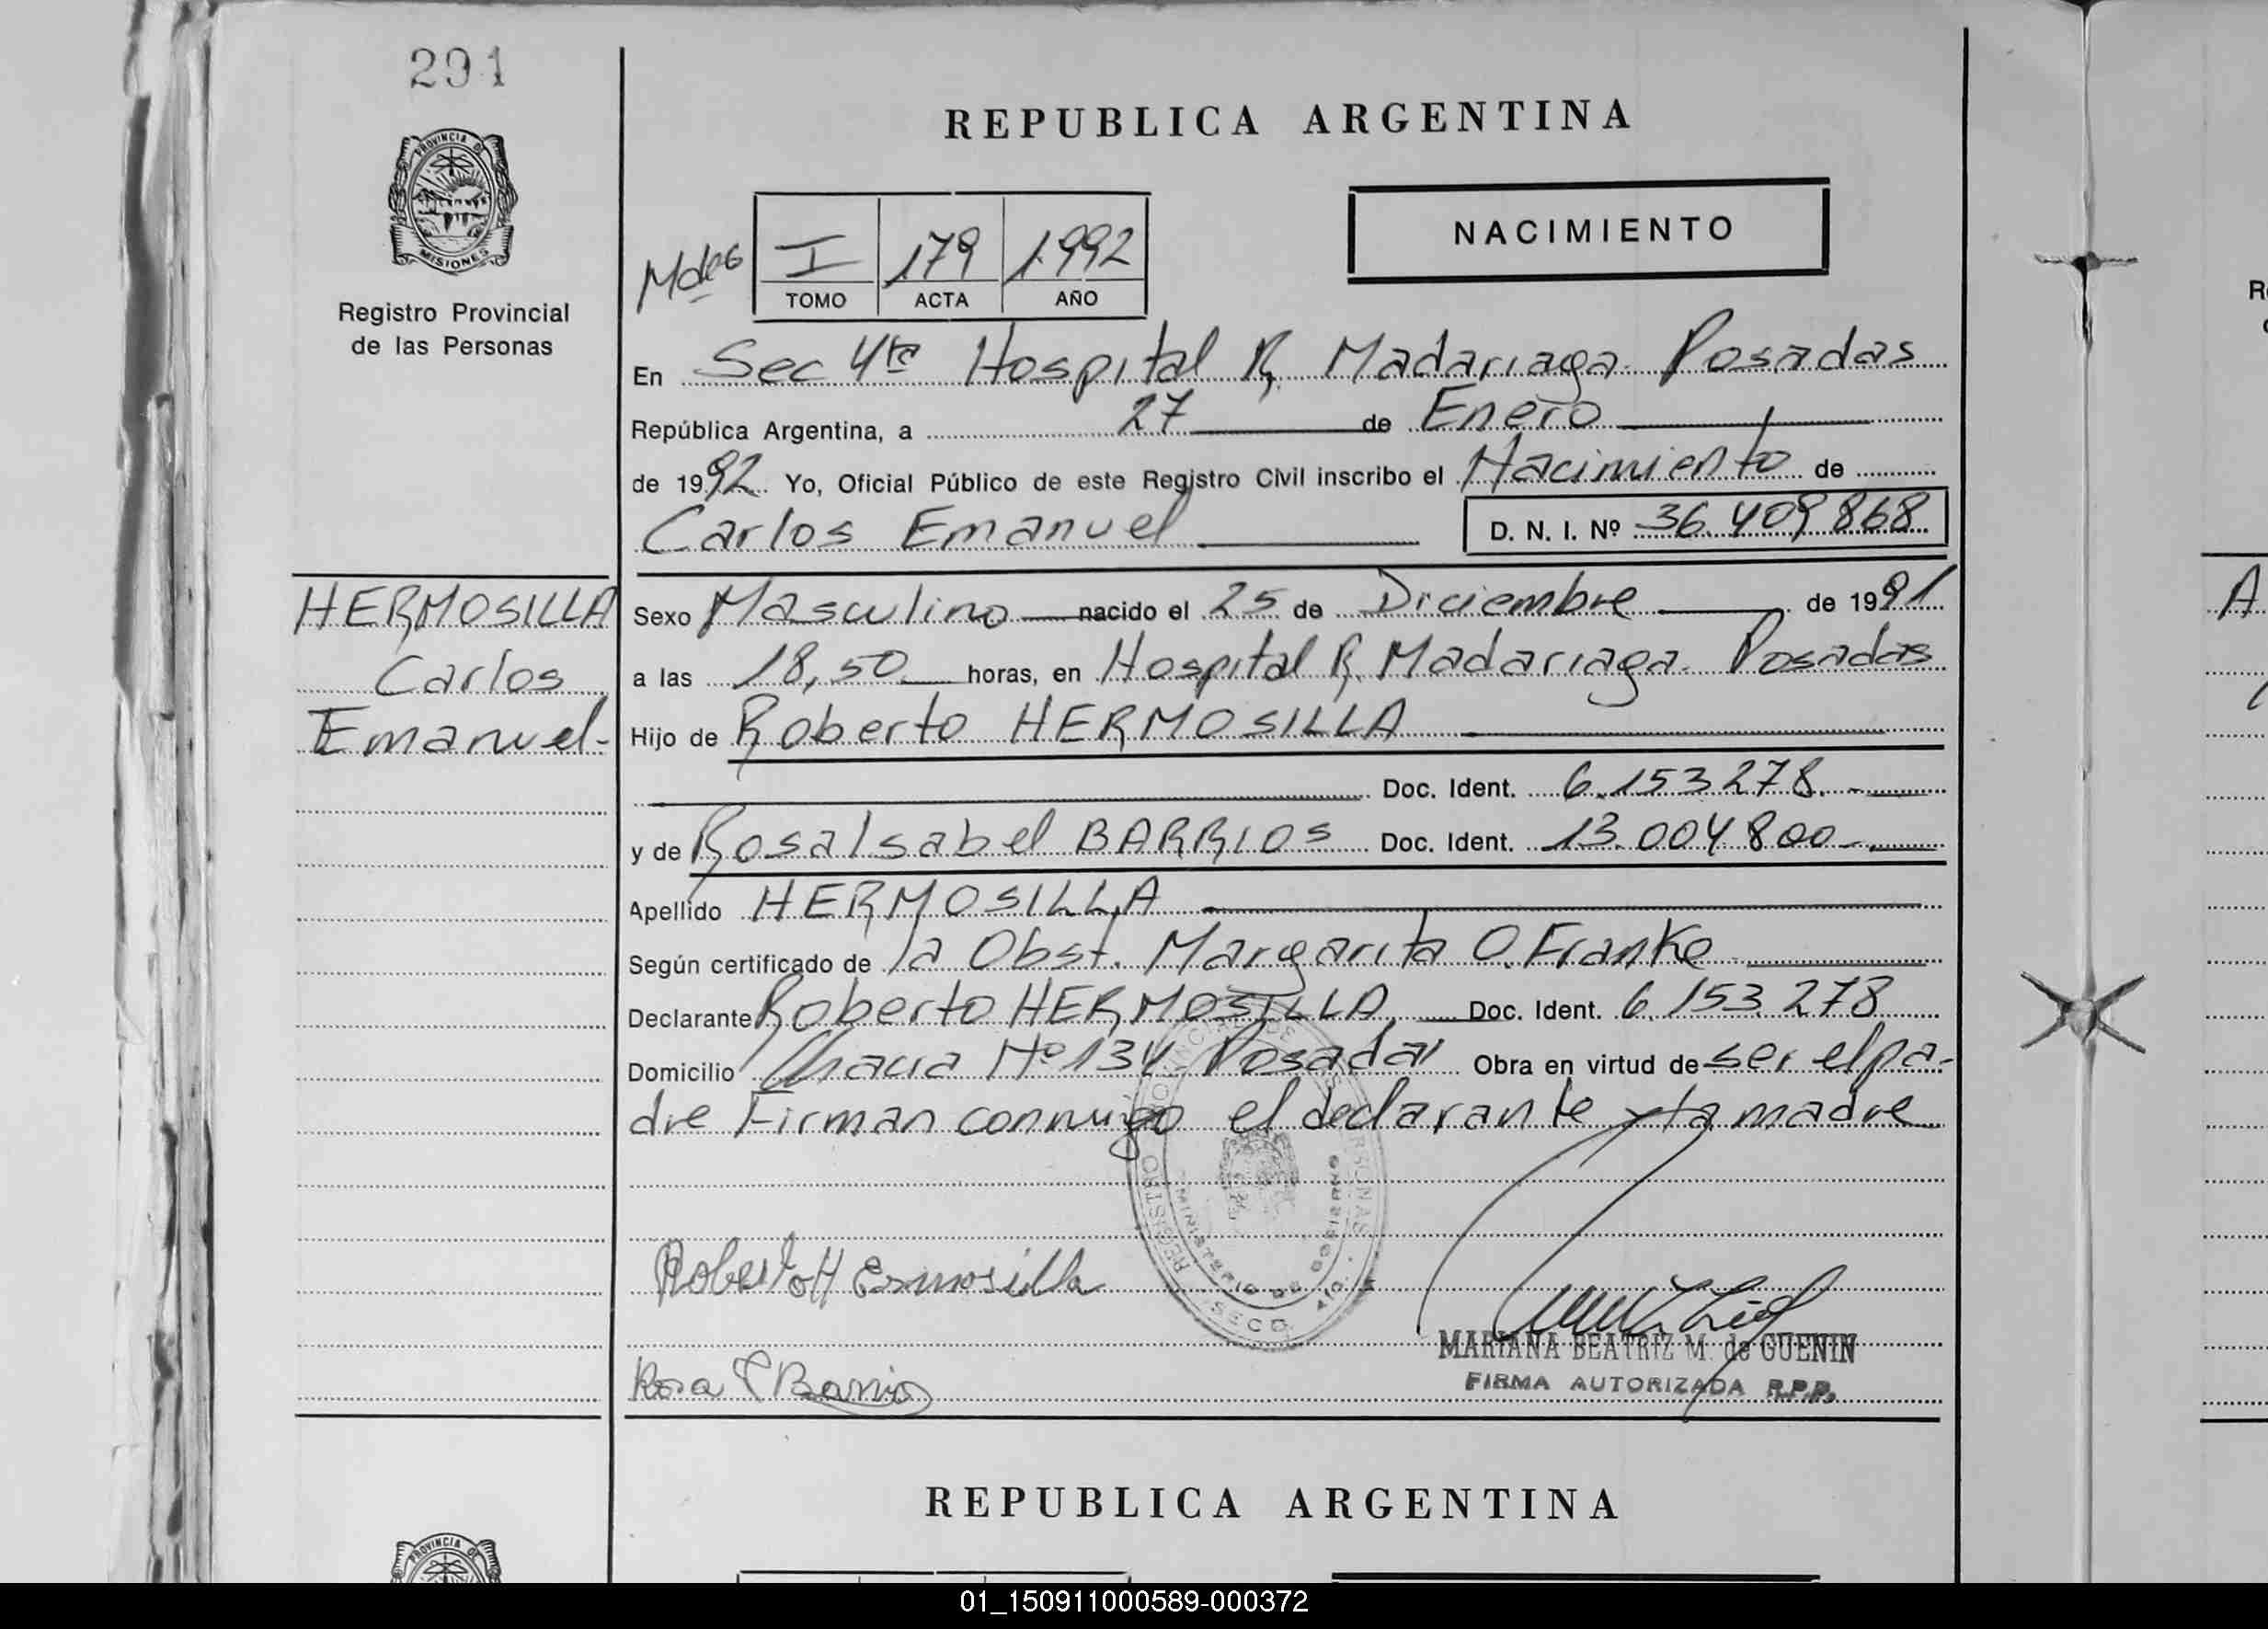 291
PROVINCIA DE
MISIONES
Registro Provincial
de las Personas
REPUBLICA ARGENTINA
NACIMIENTO
I 179 1.992
TOMO ACTA AÑO
En Sec 4ta Hospital R. Madariaga. Posadas
República Argentina, a 27 de Enero
de 1992. Yo, Oficial Público de este Registro Civil inscribo el Nacimiento de
Carlos Emanuel D. N. I. Nº 36.409868
HERMOSILLA
Carlos
Emanuel-
Sexo Masculino nacido el 25 de Diciembre de 1991
a las 18,50 horas, en Hospital R. Madariaga. Posadas
Hijo de Roberto HERMOSILLA
Doc. Ident. 6.153278.-
y de Rosa Isabel BARRIOS Doc. Ident. 13.004800-
Apellido HERMOSILLA
Según certificado de la Obst. Margarita O. Franke
Declarante Roberto HERMOSILLA Doc. Ident. 6.153.278
Domicilio Chacra Nº 134 Posadas Obra en virtud de ser el pa-
dre Firman conmigo el declarante y la madre
REGISTRO PROVINCIAL DE LAS PERSONAS
MINISTERIO DE GOBIERNO
SECC
Roberto Hermosilla
Rosa I Barrios
MARIANA BEATRIZ M. de GUENIN
FIRMA AUTORIZADA R.P.P.
REPUBLICA ARGENTINA
PROVINCIA DE
01_150911000589-000372